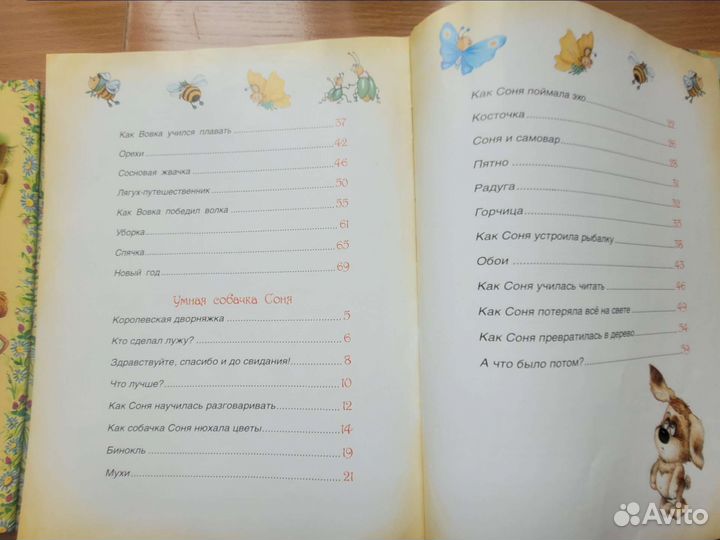 Как Вовка учился плавать 37
Орехи 42
Сосновая жвачка 46
Лягух-путешественник 50
Как Вовка победил волка 55
Уборка 61
Спячка 65
Новый год 69
Умная собачка Соня
Королевская дворняжка 5
Кто сделал лужу? 6
Здравствуйте, спасибо и до свидания! 8
Что лучше? 10
Как Соня научилась разговаривать 12
Как собачка Соня нюхала цветы 14
Бинокль 19
Мухи 21
Как Соня поймала эхо
Косточка 22
Соня и самовар 26
Пятно 28
Радуга 31
Горчица 32
Как Соня устроила рыбалку 35
Обои 38
Как Соня училась читать 43
Как Соня потеряла всё на свете 46
Как Соня превратилась в дерево 49
А что было потом? 54
59
Avito